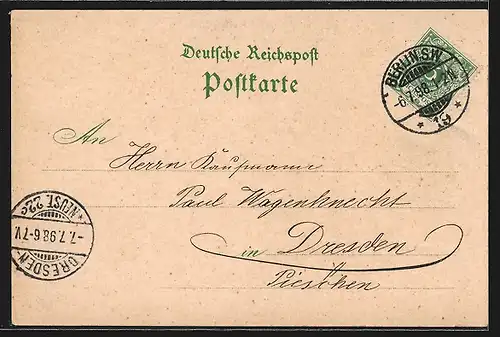 Deutsche Reichspost
Postkarte
BERLIN SW
-6.7.98.
* 19 *
An
Herrn Kaufmann
Paul Wagenknecht
in Dresden
Pieschen
NEUST. 22c
7.7.98.6-7V.
DRESDEN-